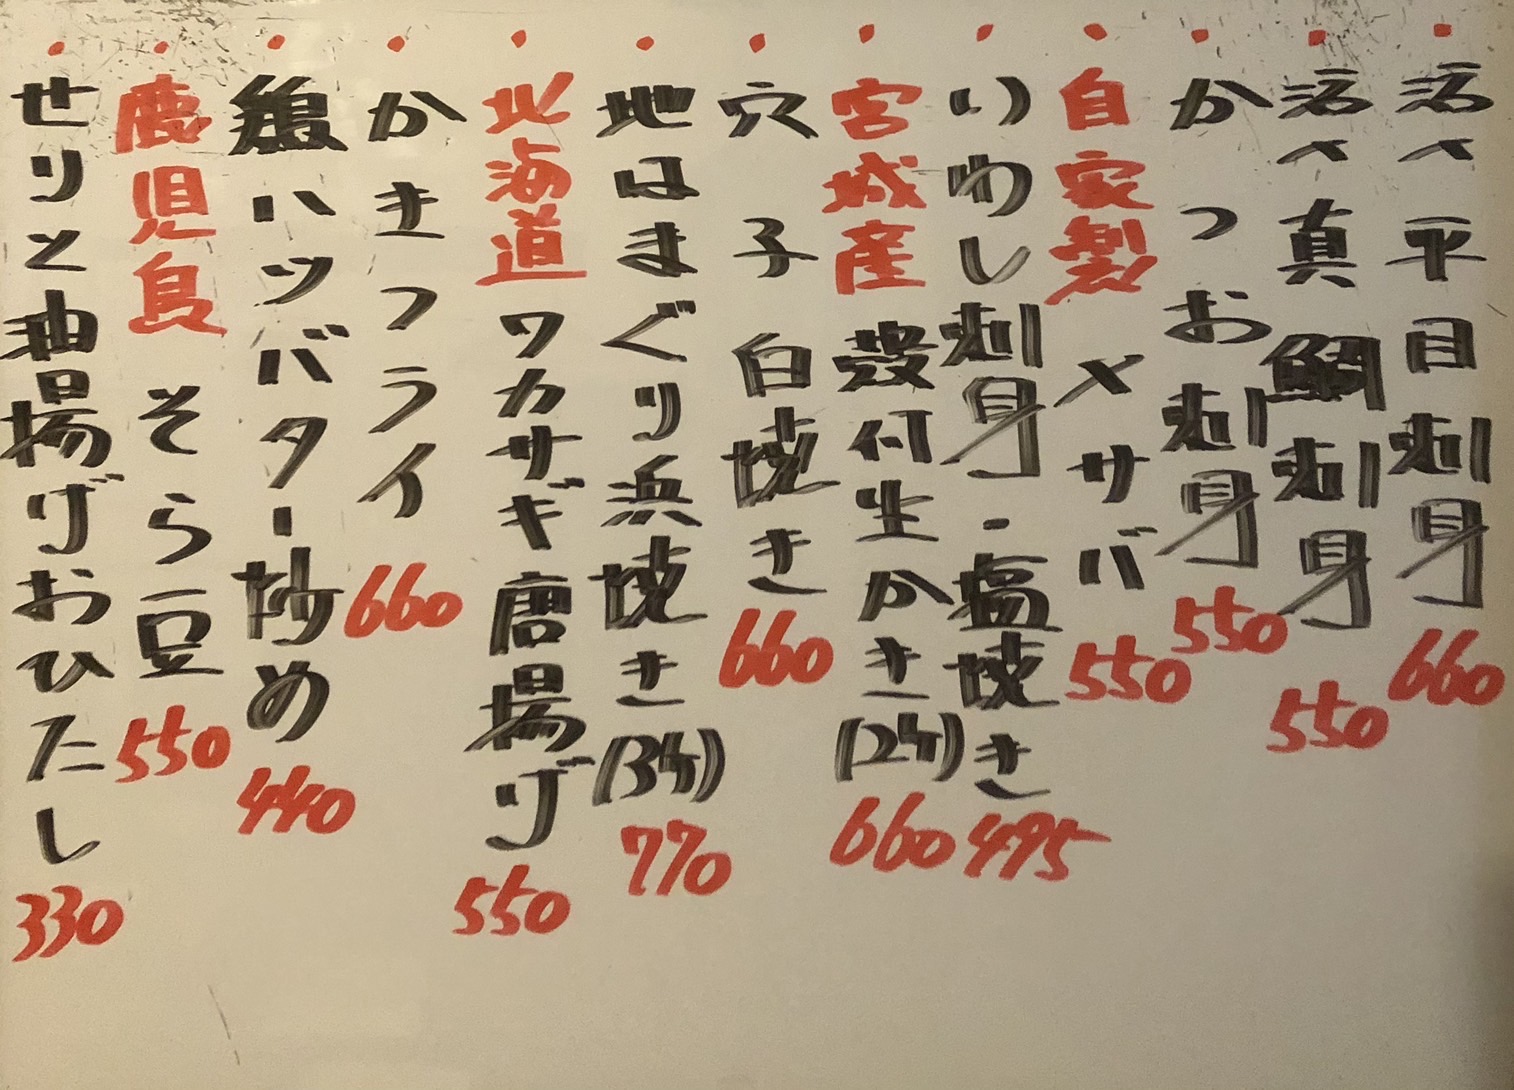 ・活〆平目刺身 660
・活〆真鯛刺身 550
・かつお刺身 550
・自家製〆サバ 550
・いわし刺身・塩焼き 495
・宮城産殻付生かき(2ケ) 660
・穴子白焼き 660
・地はまぐり浜焼き(3ケ) 770
・北海道ワカサギ唐揚げ 550
・かきフライ 660
・鶏ハツバター炒め 440
・鹿児島そら豆 550
・せりと油揚げおひたし 330